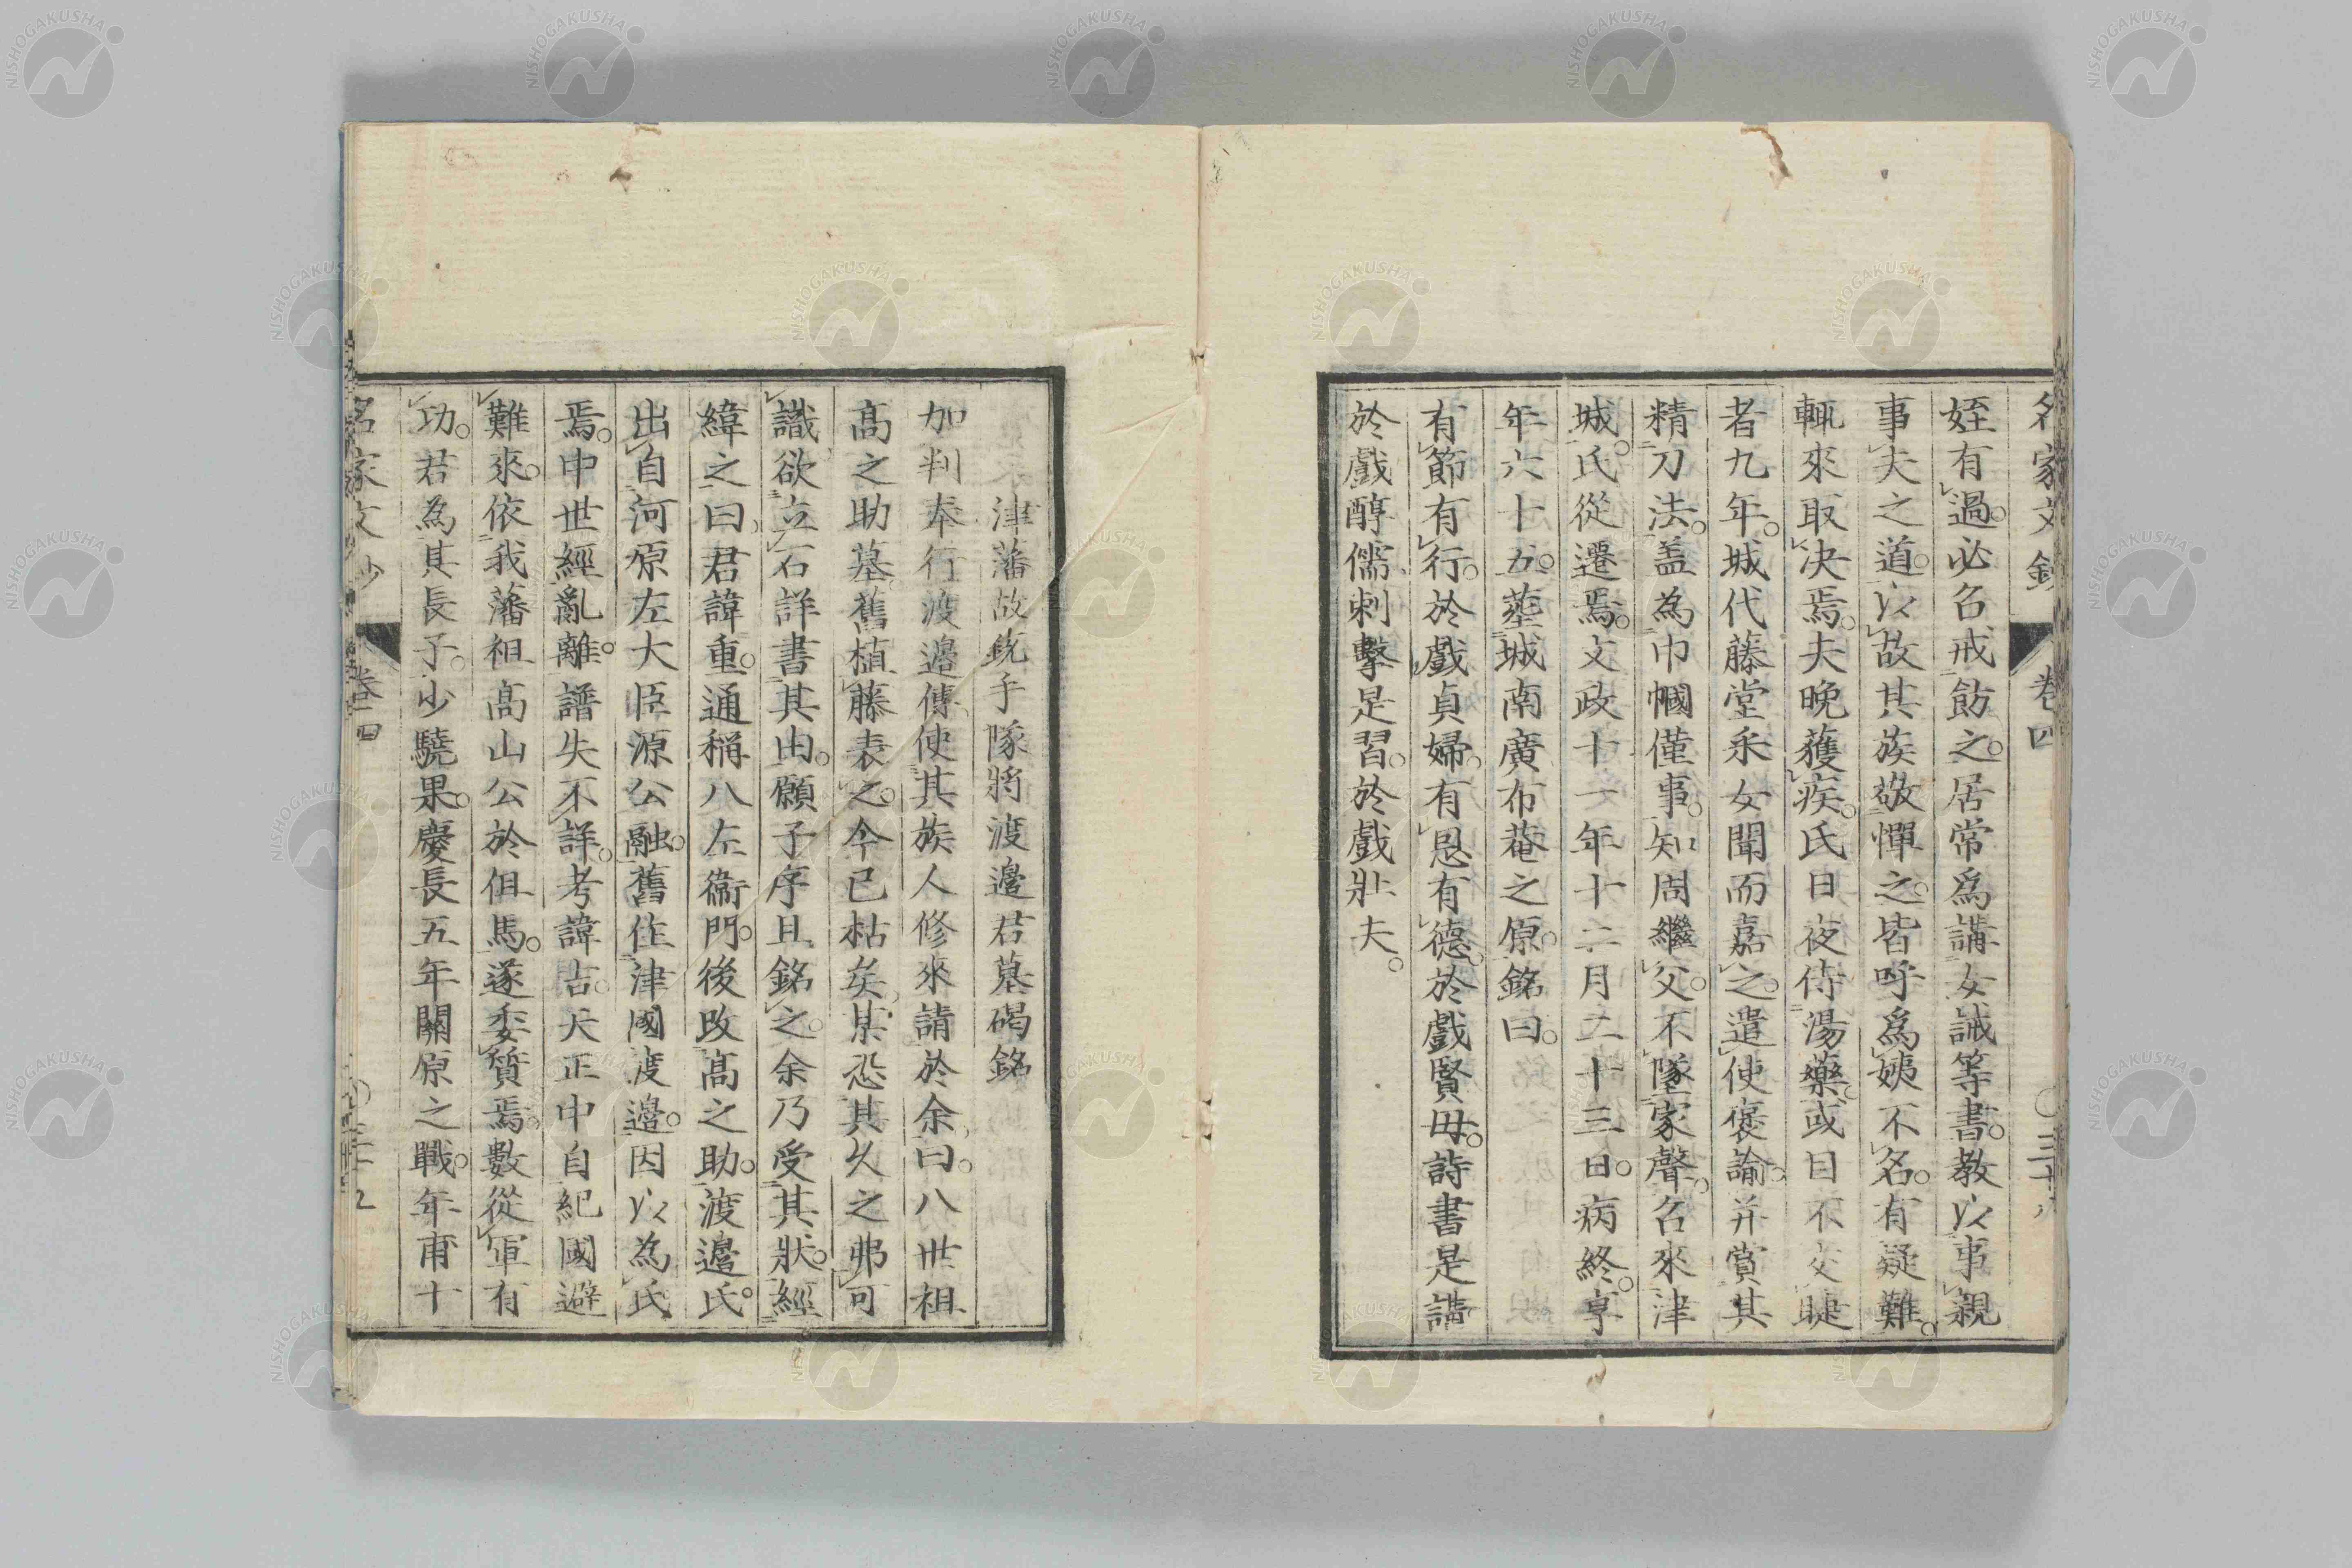 名家文鈔 卷四 〇三十八
姪有過必召戒飭之居常爲講女誡等書教以事親
事夫之道以故其族敬憚之皆呼爲姨不名有疑難
輒來取决焉夫晩獲疾氏日夜侍湯藥或目不交睫
者九年城代藤堂釆女聞而嘉之遣使褒諭并賞其
精刀法盖為巾幗僅事知周繼父不墜家聲名來津
城氏從遷焉文政十一年十二月二十三日病終享
年六十五葬城南廣布菴之原銘曰
有節有行於戲貞婦有恩有德於戲賢母詩書是講
於戲醇儒刺擊是習於戲壯夫
津藩故銃手隊將渡邉君墓碣銘
加判奉行渡邉傳使其族人修來請於余曰八世祖
髙之助墓舊植藤表之今已枯矣某恐其久之弗可
識欲立石詳書其由願子序且銘之余乃受其狀經
緯之曰君諱重通稱八左衞門後改髙之助渡邉氏
出自河原左大臣源公融舊住津國渡邉因以為氏
焉中世經亂離譜失不詳考諱吉天正中自紀國避
難來依我藩祖髙山公於但馬遂委質焉數從軍有
功若為其長子少驍果慶長五年關原之戰年甫十
名家文鈔 卷四 〇三十九